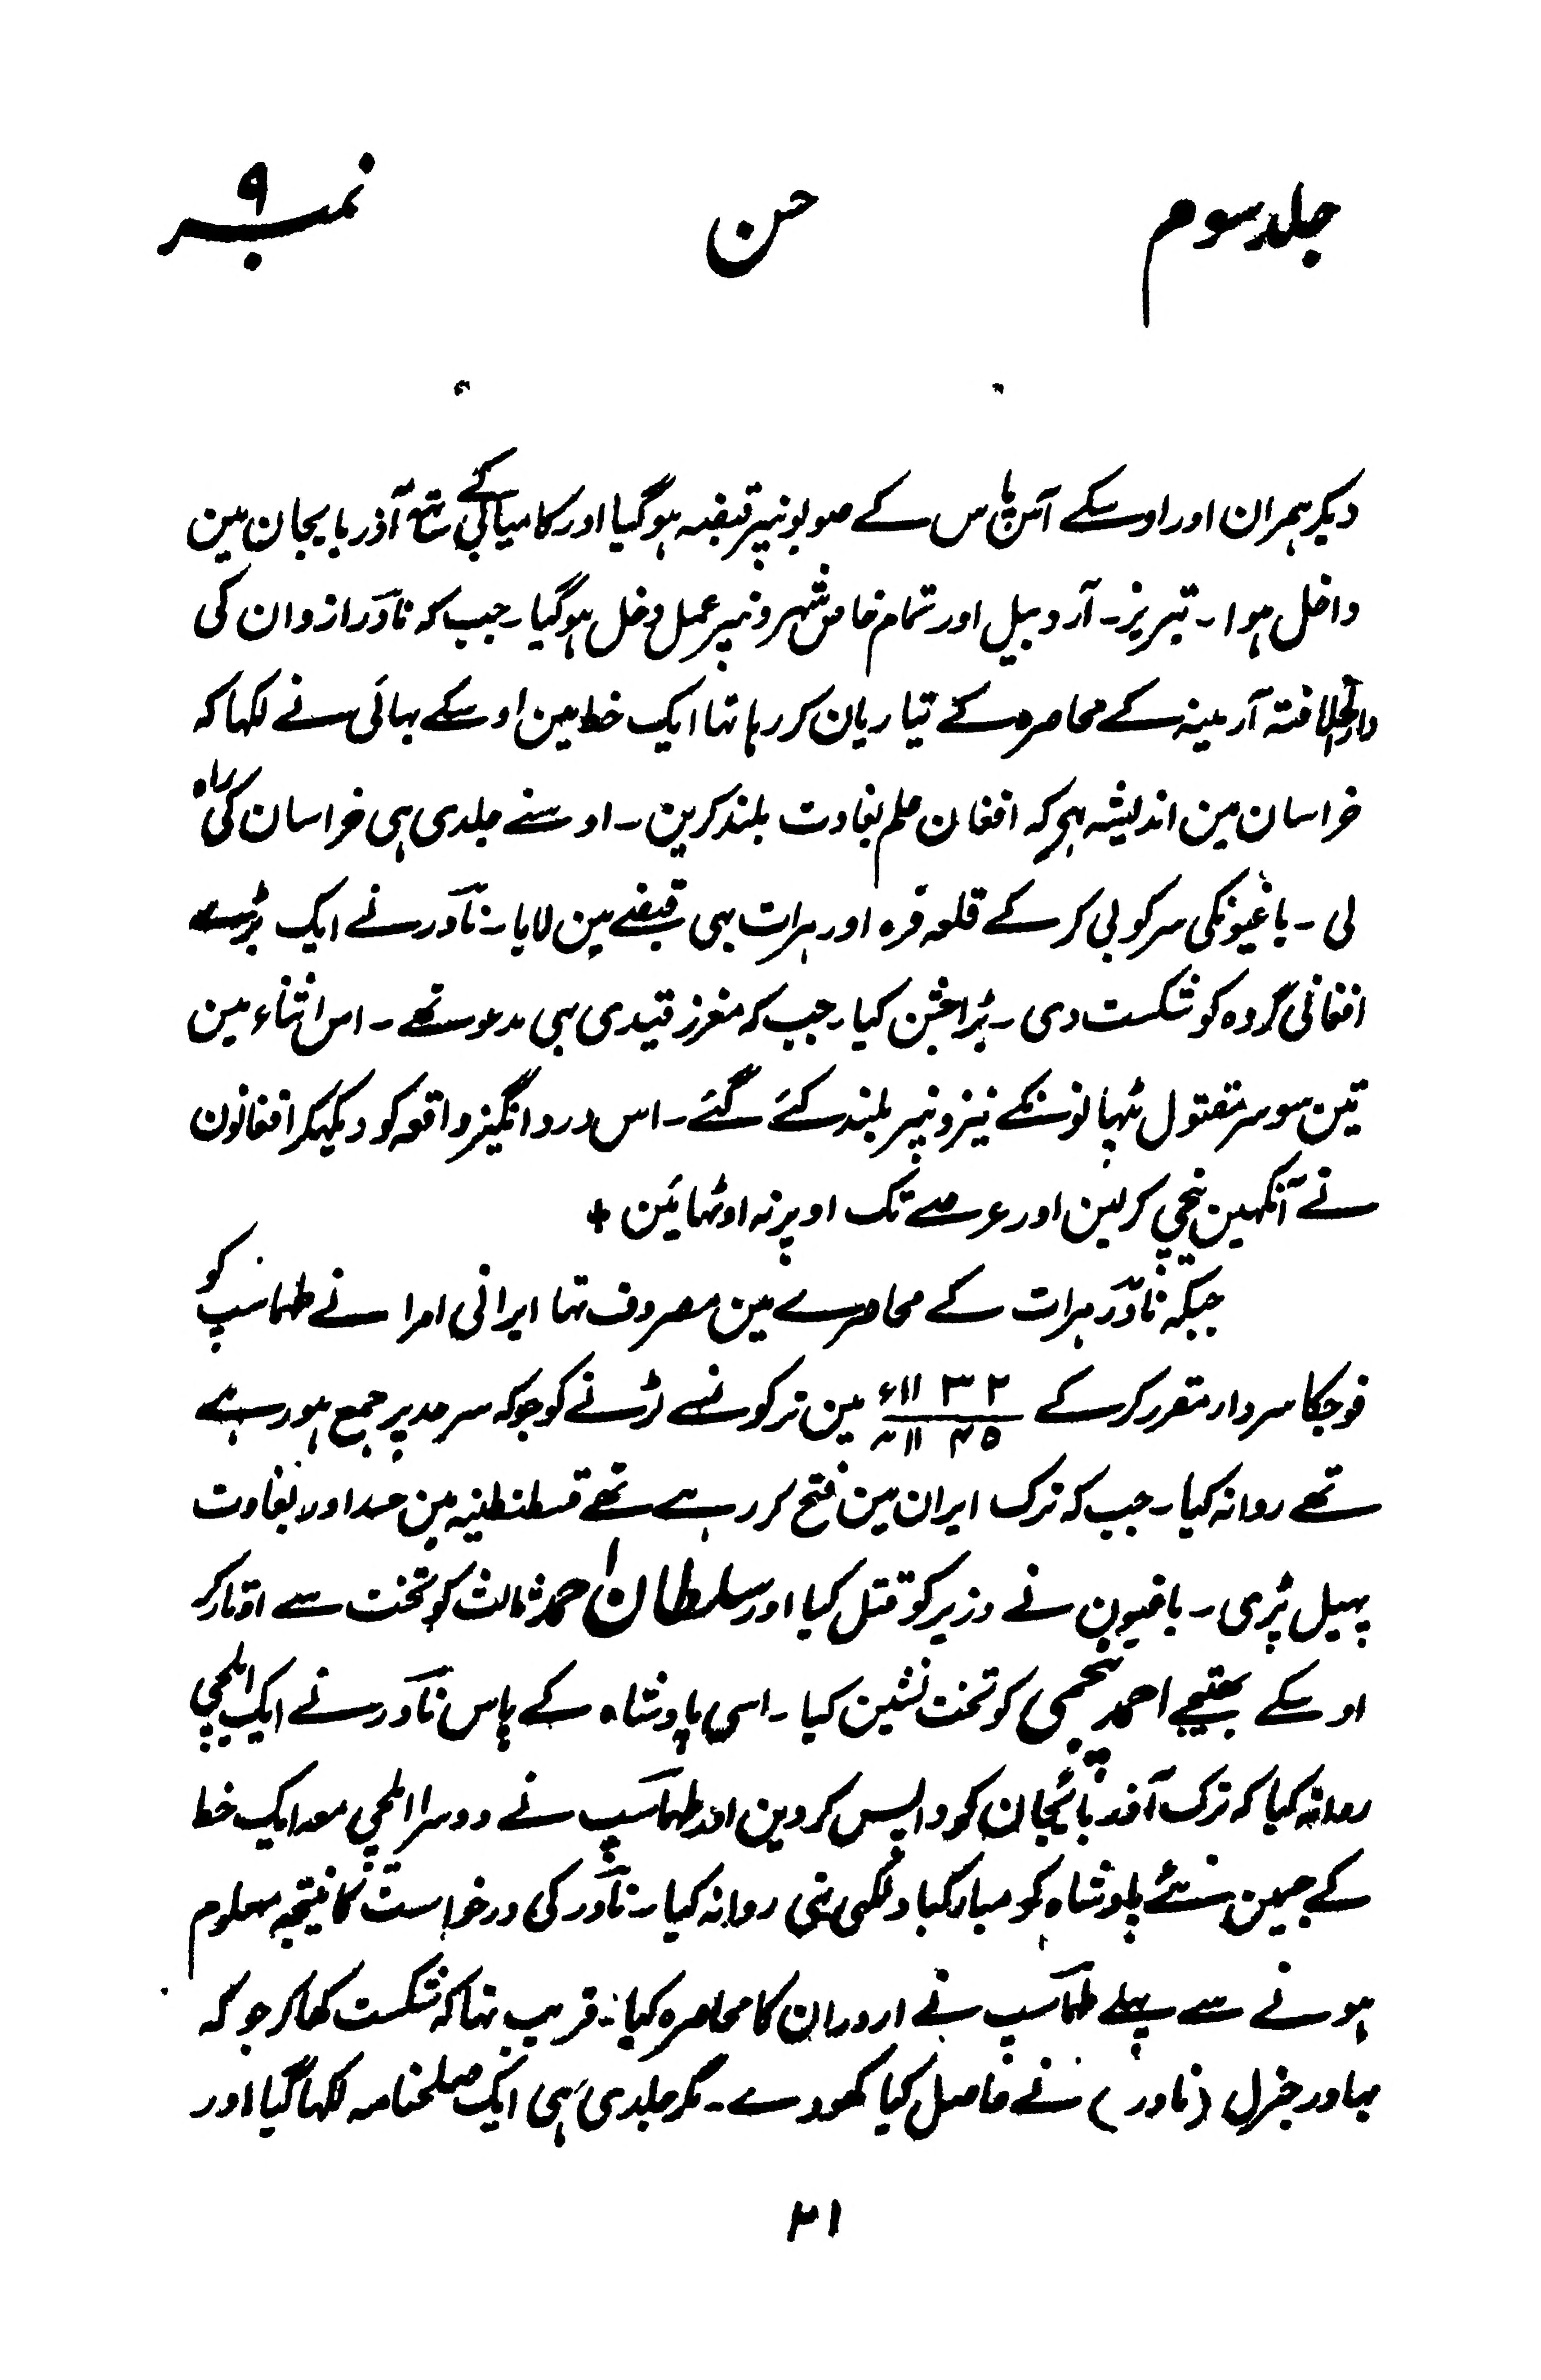 جلد سوم حسن نمبر ۹
دیکر ہمران اور اوسکے آس پاس کے صوبونپر قبضہ ہوگیا اور کامیابی کے ساتھ آذربایجان مین
داخل ہوا۔ تبریز۔ آردبیل اور تمام خاص شہرونپر عمل دخل ہوگیا۔ جب کہ نادر ازوان کی
دارالخلافتہ آرمینہ کے محاصرہ کے تیاریان کر رہا تہا ایک خط مین اوسکے بہائی نے لکہا کہ
خراسان مین اندیشہ ہی کہ افغان علم بغاوت بلند کرین۔ اوسنے جلدی ہی خراسان کی راہ
لی۔ باغیونکی سرکوبی کر کے قلعہ فرہ اور ہرات بہی قبضے مین لایا۔ نادر نے ایک بڑے
افغانی گروہ کو شکست دی۔ بڑا جشن کیا۔ جب کہ معزز قیدی بہی مدعو تھے۔ اس اثناء مین
تین سو سر مقتول پٹہانونکے نیزونپر بلند کئے گئے۔ اس درد انگیز واقعہ کو دیکہکر افغانون
نے آنکہین نیچی کرلین اور عرصے تک اوپر نہ اوٹہائین +
جبکہ نادر ہرات کے محاصرے مین مصروف تہا ایرانی امرا نے طہماسپ کو
فوجکا سردار مقرر کر کے ۱۷۳۲ء ۱۱۴۵ھ مین ترکونسے لڑنے کو جو کہ سرحد پر جمع ہو رہے
تھے روانہ کیا۔ جب کہ ترک ایران مین فتح کر رہے تھے قسطنطنیہ مین حسد اور بغاوت
پہیل پڑی۔ باغیون نے وزیر کو قتل کیا اور سلطان احمد ثالث کو تخت سے اوتار کر
اوسکے بھتیجے احمد پنجمی کو تخت نشین کیا۔ اسی پادشاہ کے پاس نادر نے ایک ایلچی
روانہ کیا کہ ترک آذربائیجان کو واپس کر دین اور طہماسپ نے دوسرا ایلچی معہ ایک خط
کے جسمین نئے پادشاہ کو مبارکباد لکہی تہی روانہ کیا۔ نادر کی درخواست کا نتیجہ معلوم
ہونے سے پہلے طہماسپ نے اردران کا محاصرہ کیا۔ قریب تہا کہ شکست کھا کر جو کہ
بہادر جنرل (نادر) نے حاصل کیا کھودے۔ مگر جلدی ہی ایک صلحنامہ لکہا گیا اور
۲۱